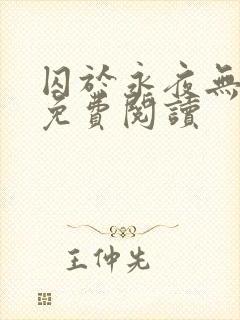 囚於永夜無
免費閱讀
王仲先